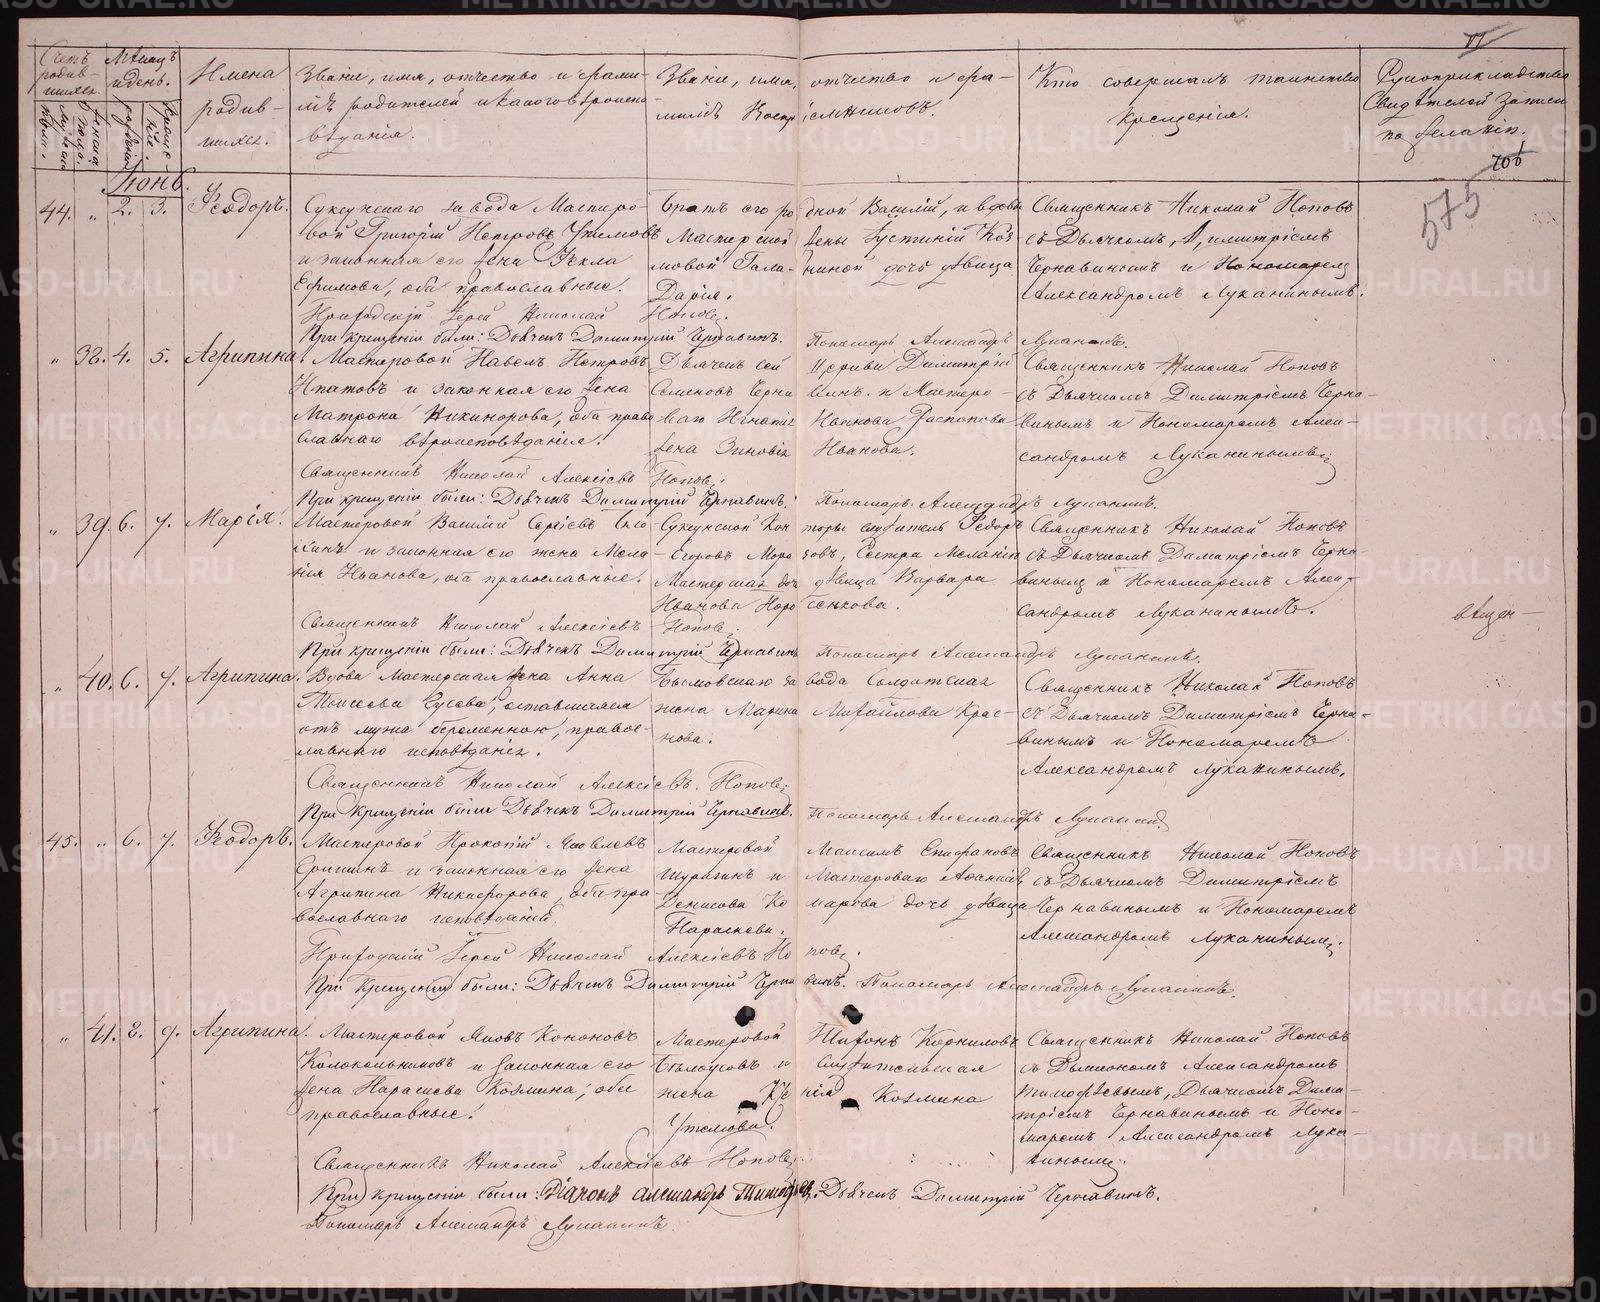 Счетъ родив- шихся.
Мѣсяцъ и день.
Имена родив- шихся.
Званіе, имя, отчество и фами-
лія родителей и какого вѣроиспо-
вѣданія.
Званіе, имя, отчество и фа-
милія воспріемниковъ.
Кто совершалъ таинство
крещенія.
Рукоприкладство
Свидѣтелей записи
по желанію.
575
Іюнь.
44. " 2. 3. Ѳеодоръ.
Суксунскаго завода Мастеро-
вой Григорій Петровъ Утемовъ
и законная его жена Ѳекла
Ефимова, оба православные.
Братъ его родной Василій, и вдовы
Мастерской жены Іустиніи Коз-
мовой Гала- ниной дочь дѣвица
Дарія.
Священникъ Николай Поповъ
съ Дьячкомъ Димитріемъ
Чернавинымъ и Пономаремъ
Александромъ Луканинымъ.
Приходскій Іерей Николай Поповъ
При крещеніи были: Дьячекъ Димитрій Чернавинъ. Пономарь Александръ Луканинъ.
" 38. 4. 5. Агрипина.
Мастеровой Павелъ Петровъ
Ипатовъ и законная его жена
Матрона Никинорова, оба право
славнаго вѣроисповѣданія.
Дьячекъ сей Церкви Димитрій
Семеновъ Черна винъ. и Мастеро-
ваго Игнатія Иванова Распопова
жена Зиновія Иванова.
Священникъ Николай Поповъ
съ Дьячкомъ Димитріемъ Черна-
винымъ и Пономаремъ Алек-
сандромъ Луканинымъ.
Священникъ Николай Алексіевъ Поповъ.
При крещеніи были: Дьячекъ Димитрій Чернавинъ. Пономарь Александръ Луканинъ.
" 39. 6. 7. Марія.
Мастеровой Василій Сергіевъ
и законная его жена Мела-
нія Иванова, оба православные.
Суксунской Кон торы служитель Ѳедоръ
Егоровъ Моро зовъ, Сестра Меланіи
Мастерская дочь дѣвица Варвара
Иванова
Священникъ Николай Поповъ
съ Дьячкомъ Димитріемъ Черна-
винымъ и Пономаремъ Алек-
сандромъ Луканинымъ.
Священникъ Николай Алексіевъ Поповъ.
При крещеніи были: Дьячекъ Димитрій Чернавинъ Пономарь Александръ Луканинъ.
" 40. 6. 7. Агрипина.
Вдова Мастерская жена Анна
Моисеева Гусева, оставшаяся
отъ мужа беременною, правос-
лавнаго исповѣданія.
Бымовскаго за вода Солдатская
жена Марина Михайлова Крас-
нова.
Священникъ Николай Поповъ
съ Дьячкомъ Димитріемъ Черна-
винымъ и Пономаремъ
Александромъ Луканинымъ.
Священникъ Николай Алексіевъ Поповъ.
При крещеніи были Дьячекъ Димитрій Чернавинъ. Пономарь Александръ Луканинъ.
45. " 6. 7. Ѳеодоръ.
Мастеровой Прокопій Яковлевъ
и законная его жена
Агрипина Никифорова, оба пра
вославнаго исповѣданія.
Мастеровой Максимъ Епифановъ
Шурыгинъ и Мастероваго Афанасія
Денисова Ко марова дочь дѣвица
Параскева.
Священникъ Николай Поповъ
съ Дьячкомъ Димитріемъ
Чернавинымъ и Пономаремъ
Александромъ Луканинымъ.
Приходскій Іерей Николай Алексіевъ Поповъ.
При крещеніи были: Дьячекъ Димитрій Чернавинъ. Пономарь Александръ Луканинъ.
" 41. 8. 9. Агрипина.
Мастеровой Яковъ Кононовъ
Колокольниковъ и законная его
жена Параскева Козмина, оба
православные.
Мастеровой Тихонъ Корниловъ
Бѣлоусовъ и Служительская
жена Козмина
Утемова.
Священникъ Николай Поповъ
съ Дьякономъ Александромъ
Тимофѣевымъ, Дьячкомъ Дими-
тріемъ Чернавинымъ и Поно-
маремъ Александромъ Лука-
нинымъ.
Священникъ Николай Алексіевъ Поповъ
При крещеніи были: Діаконъ Александръ Тимофѣевъ, Дьячекъ Димитрій Чернавинъ.
Пономарь Александръ Луканинъ.
METRIKI.GASO-URAL.RU